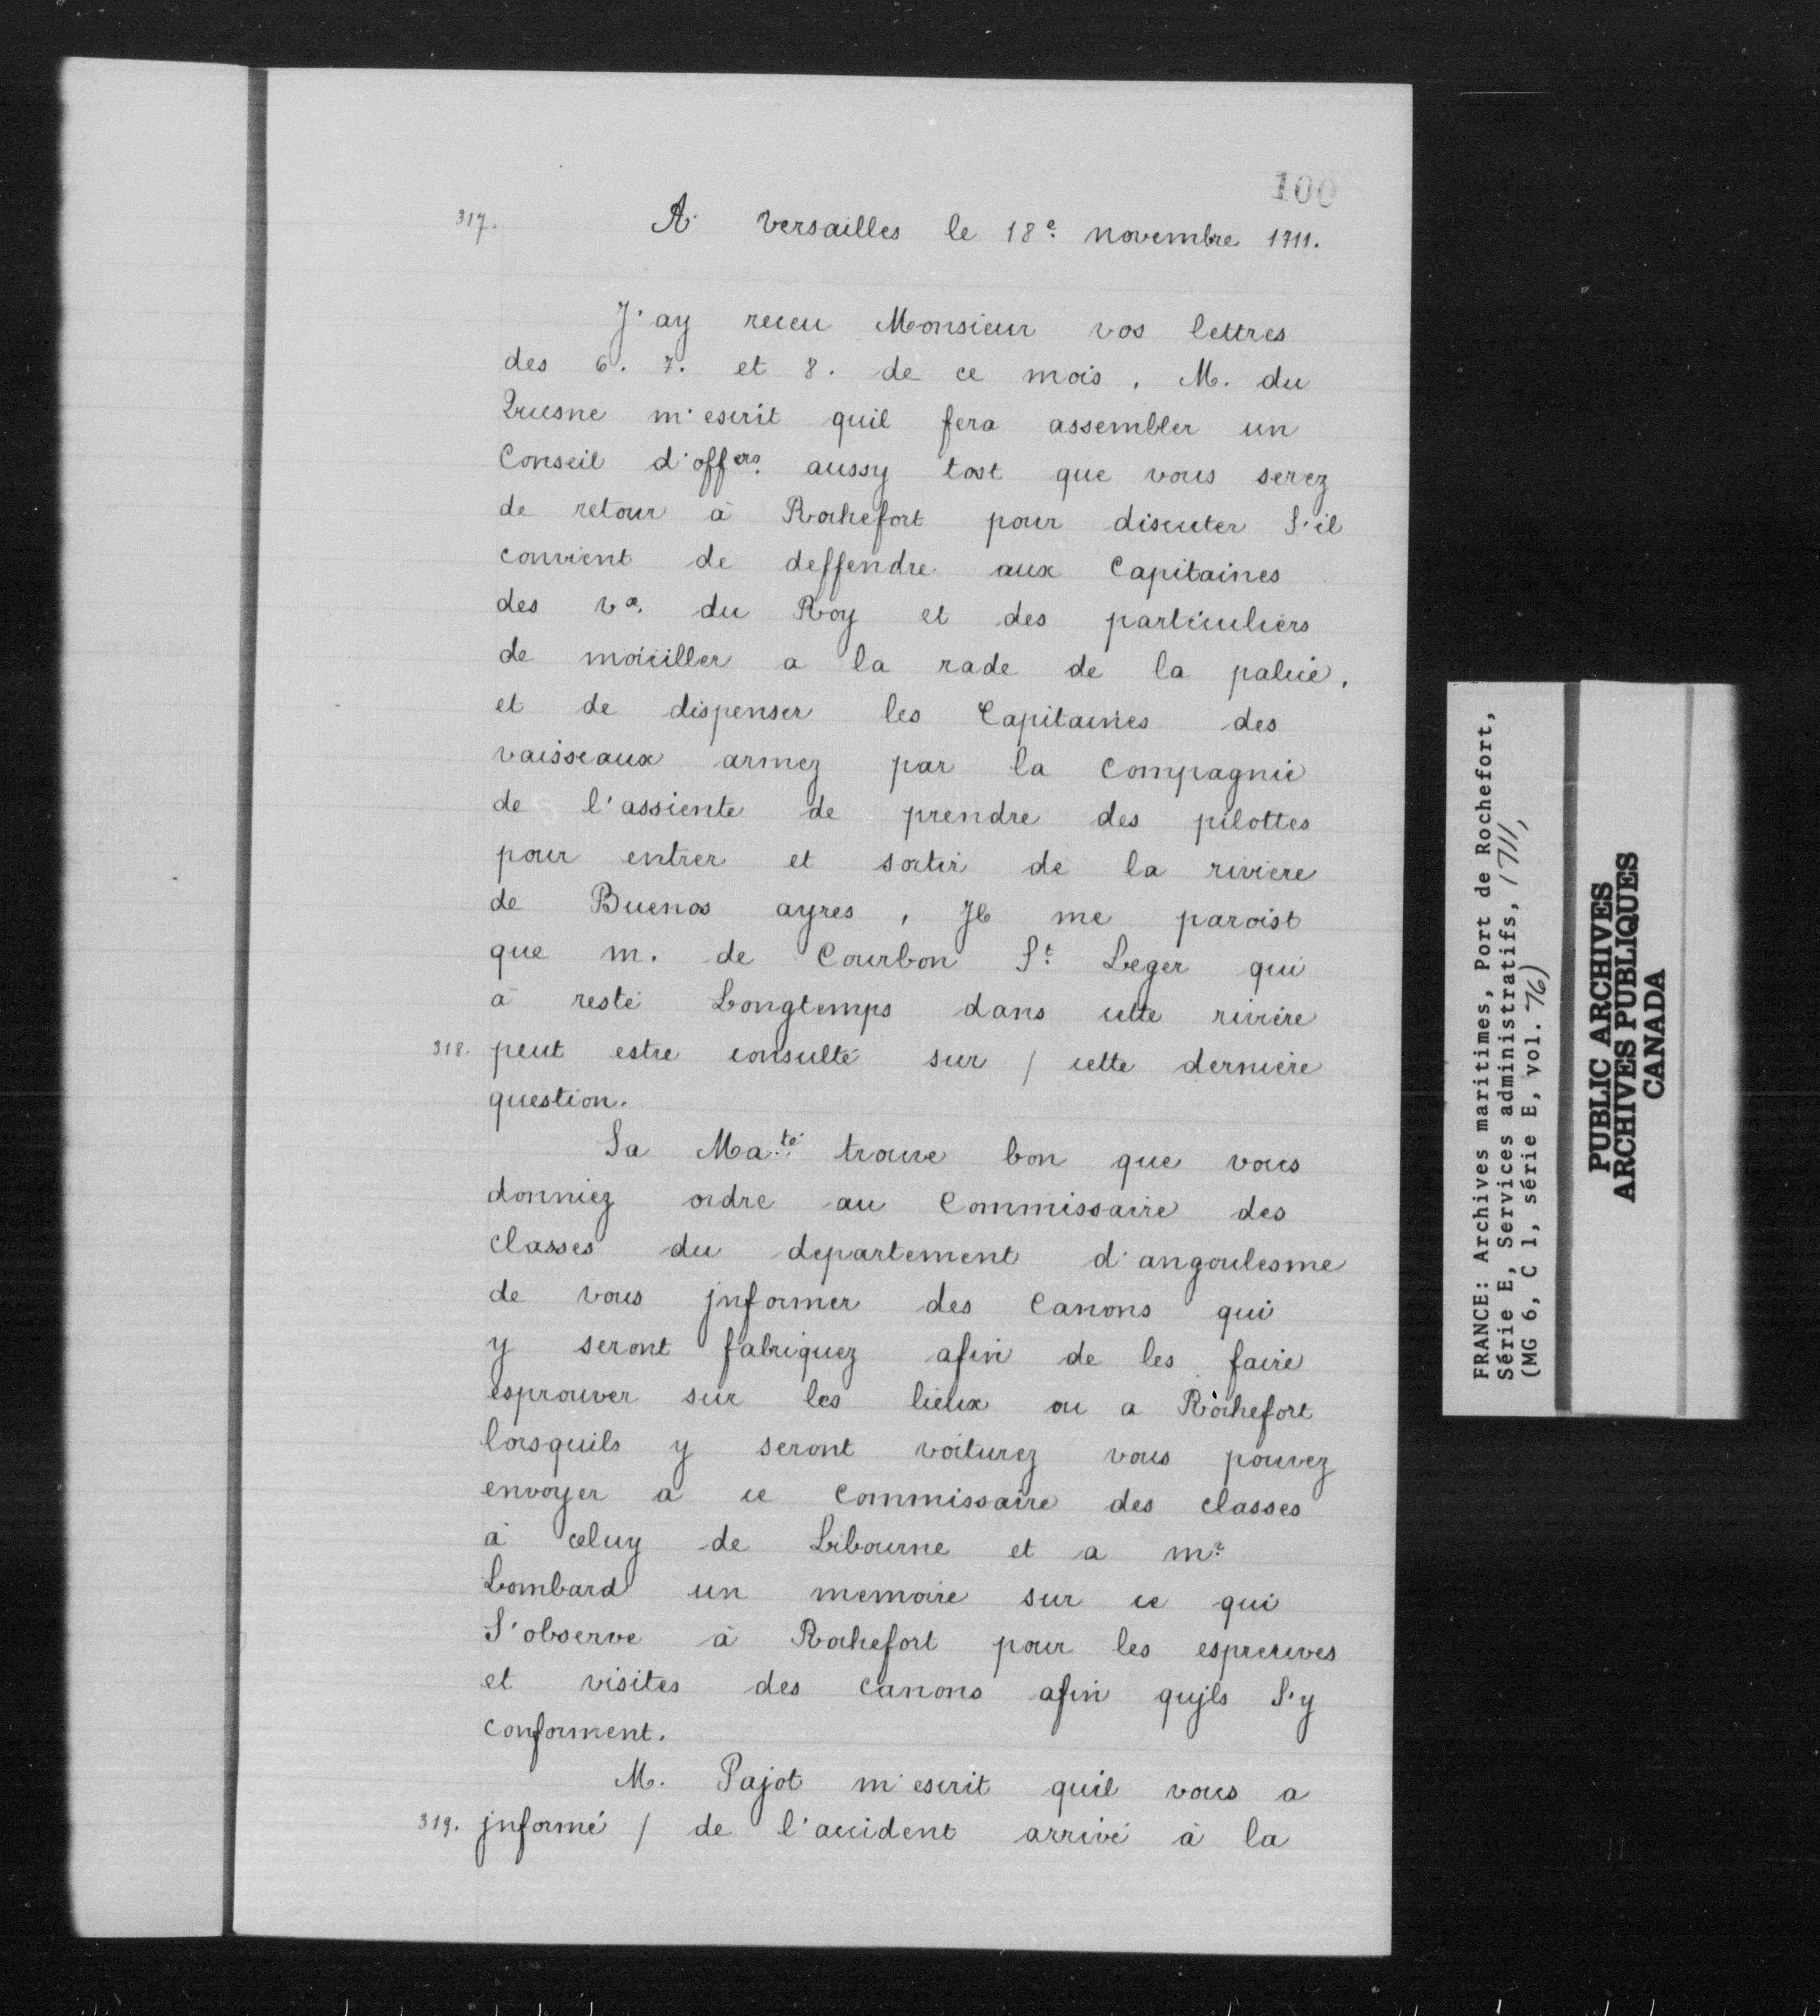 100
317. A Versailles le 18e novembre 1711.
J'ay receu Monsieur vos lettres
des 6. 7. et 8. de ce mois. M. du
Quesne m'escrit quil fera assembler un
Conseil d'offers. aussy tost que vous serez
de retour à Rochefort pour discuter S'il
convient de deffendre aux Capitaines
des vx. du Roy et des particuliers
de moüiller a la rade de la palice.
et de dispenser les Capitaines des
vaisseaux armez par la Compagnie
de l'assiente de prendre des pilottes
pour entrer et sortir de la riviere
de Buenos ayres, Il me paroist
que m. de Courbon St Leger qui
à resté Longtemps dans cette rivière
318. peut estre consulté sur / cette derniere
question.
Sa Maté trouve bon que vous
donniez ordre au Commissaire des
classes du departement d'angoulesme
de vous jnformer des Canons qui
y seront fabriquez afin de les faire
esprouver sur les lieux ou a Rochefort
lorsquils y seront voiturez vous pouvez
envoyer a ce Commissaire des classes
à celuy de Libourne et a mr
Lombard un memoire sur ce qui
S'observe à Rochefort pour les espreuves
et visites des canons afin qujls S'y
conforment.
M. Pajot m'escrit quil vous a
319. jnformé / de l'accident arrivé à la
FRANCE: Archives maritimes, Port de Rochefort,
Série E, Services administratifs, 1711,
(MG 6, C 1, série E, vol. 76)
PUBLIC ARCHIVES
ARCHIVES PUBLIQUES
CANADA